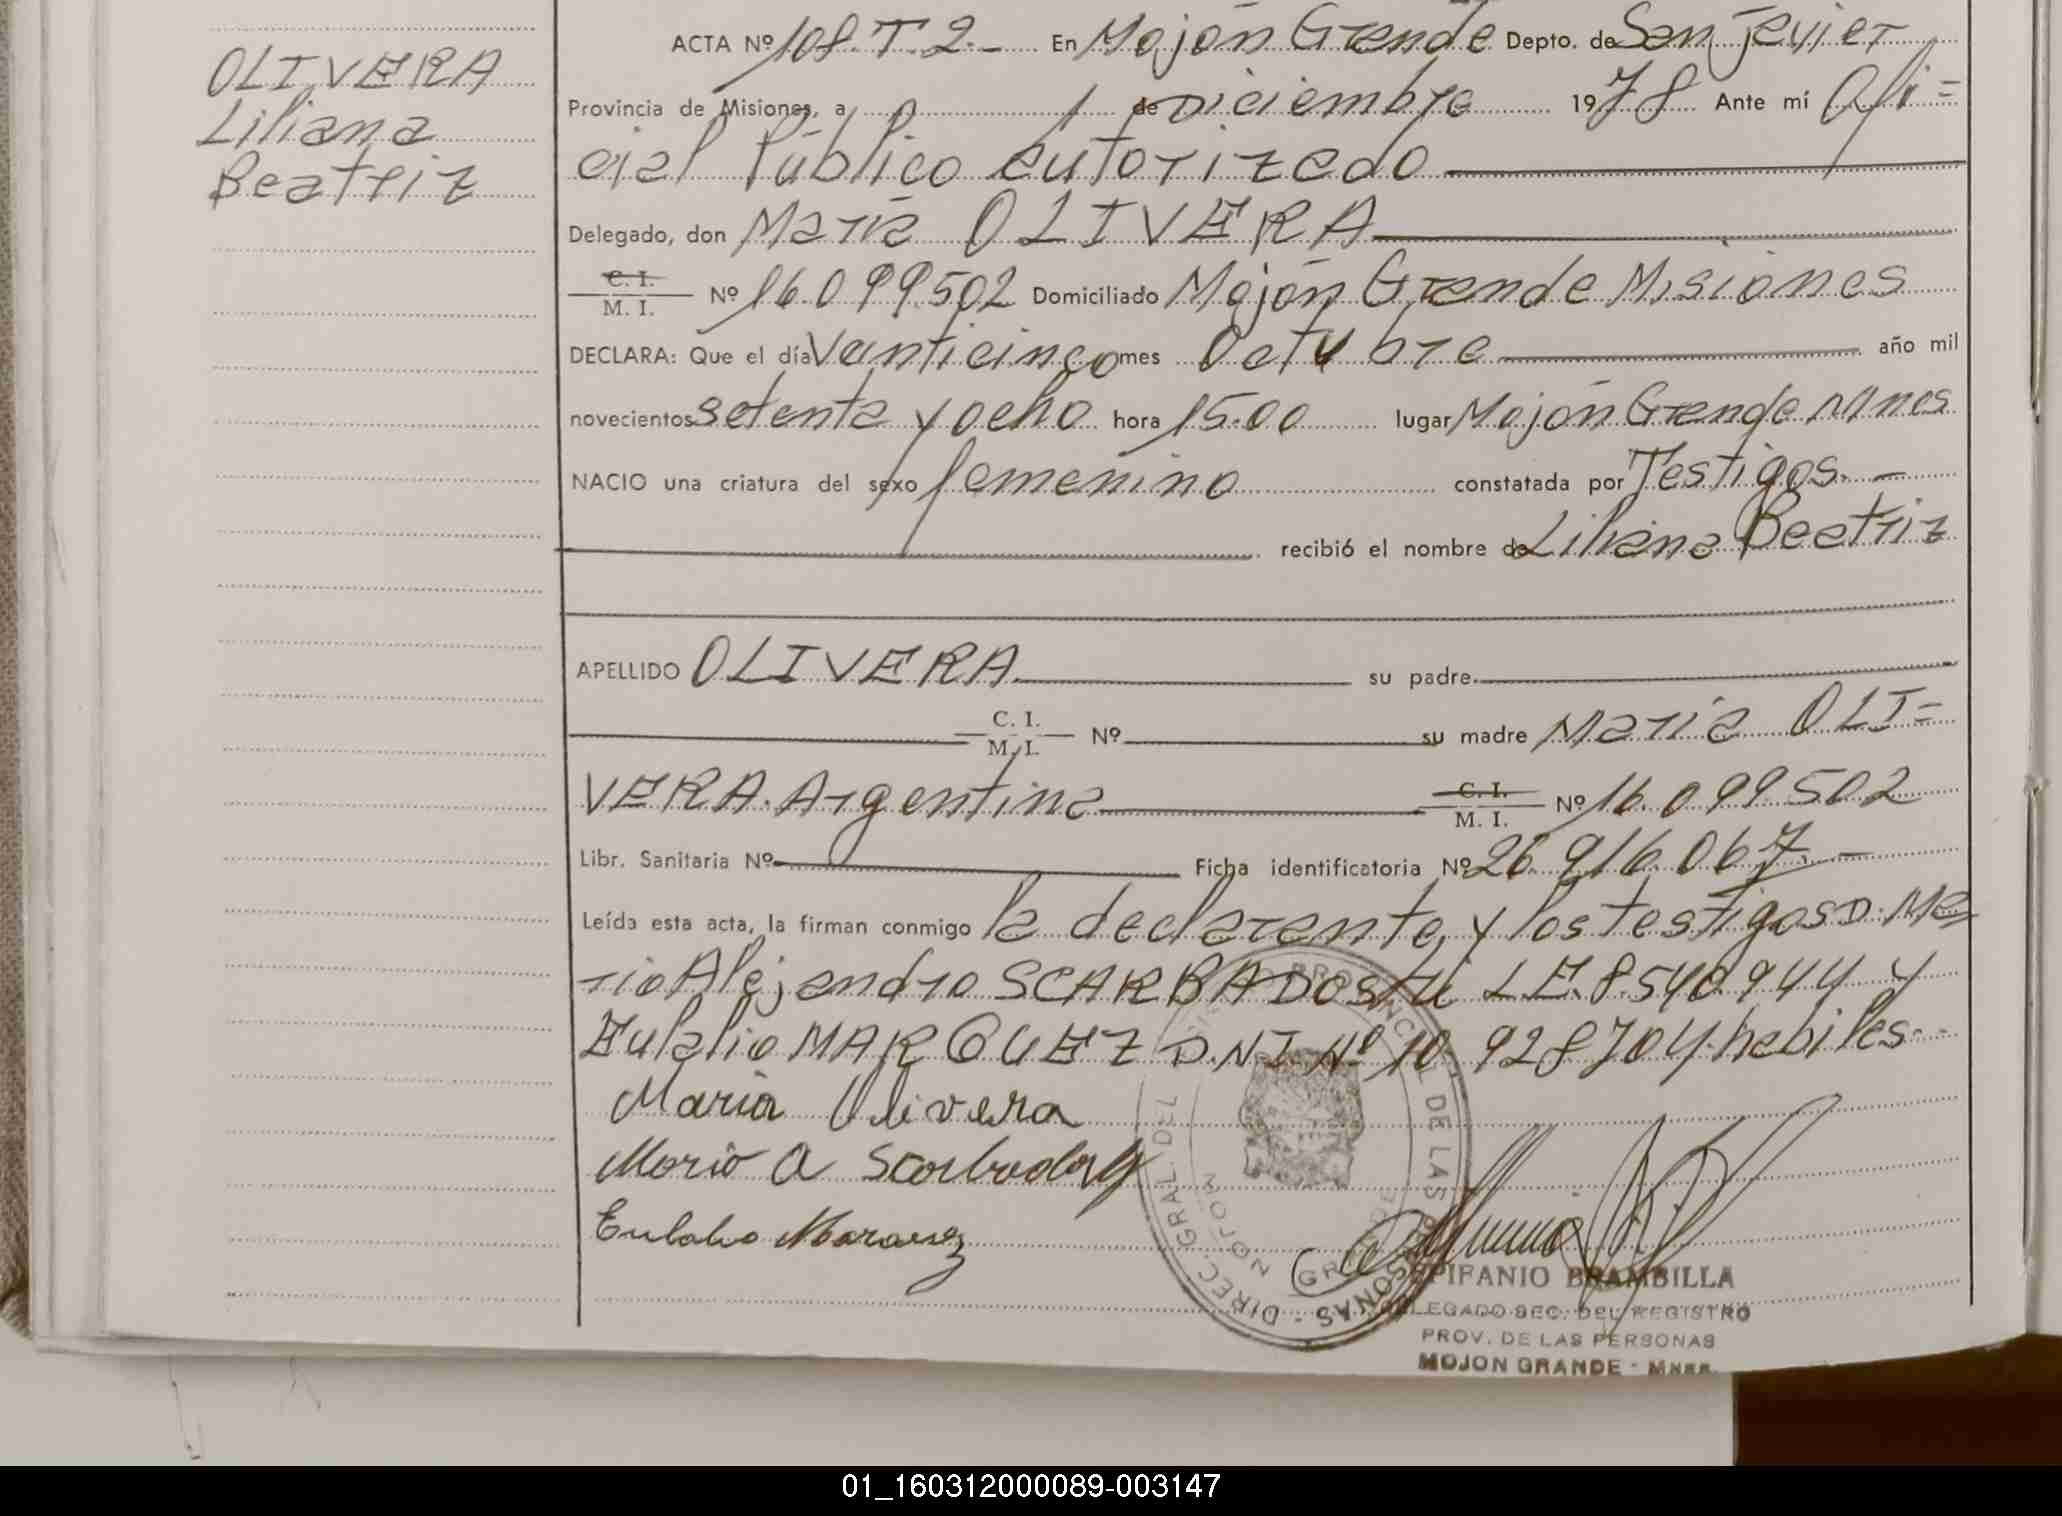 OLIVERA
Liliana
Beatriz
ACTA Nº 108.T.2.- En Mojón Grande Depto. de San Javier
Provincia de Misiones, a 1 de Diciembre 1978 Ante mí Ofi=
cial Público autorizado
Delegado, don María OLIVERA
C. I.
M. I. Nº 16.099.502 Domiciliado Mojón Grande Misiones
DECLARA: Que el día Veinticinco mes Octubre año mil
novecientos setenta y ocho hora 15.00 lugar Mojón Grande Mnes
NACIO una criatura del sexo femenino constatada por Testigos.-
recibió el nombre de Liliana Beatriz
APELLIDO OLIVERA su padre
C. I.
M. I. Nº su madre María OLI=
VERA. Argentina C. I.
M. I. Nº 16.099.502
Libr. Sanitaria Nº Ficha identificatoria Nº 26.916.067.-
Leída esta acta, la firman conmigo la declarante, y los testigos D. Ma
rio Alejandro SCARBADOSKU LE.8.540.944 y
Eulalio MARQUEZ D.N.I. Nº 10.928704. habiles.-
Maria Olivera
Mario A
Eulalio Marquez
DIREC. GRAL. DEL PROVINCIAL DE LAS PERSONAS
MOJON GRANDE
EPIFANIO BRAMBILLA
DELEGADO SEC. DEL REGISTRO
PROV. DE LAS PERSONAS
MOJON GRANDE - MNES.
01_160312000089-003147